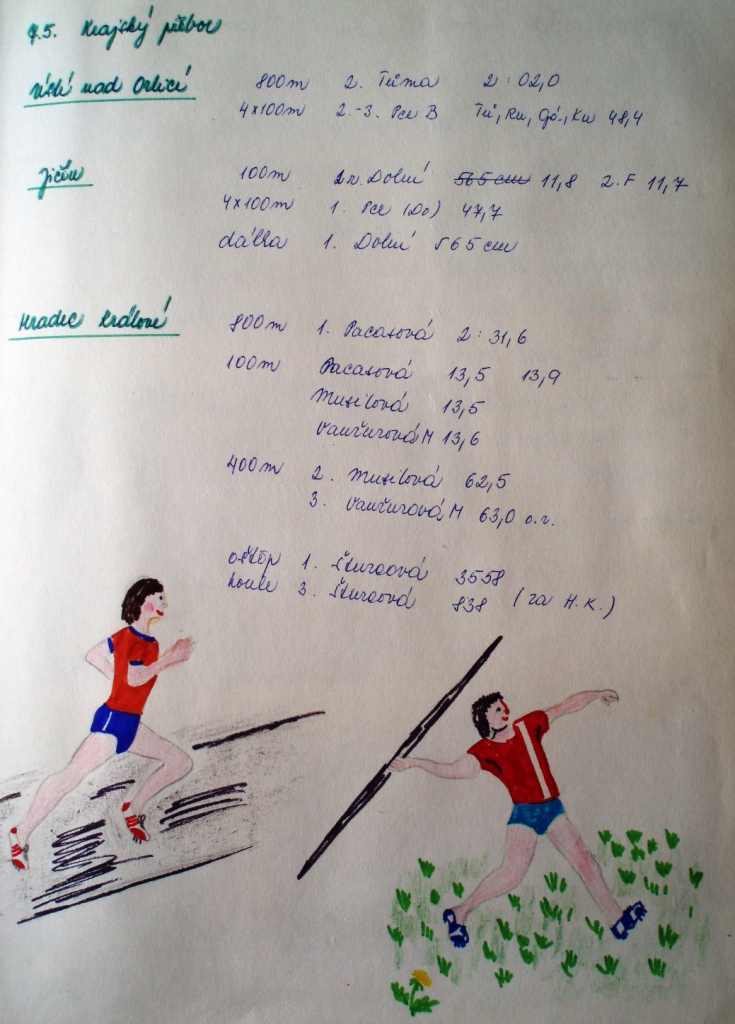 7.5. Krajský přebor
Ústí nad Orlicí 800m 2. Tůma 2:02,0
4x100m 2.-3. Pce B Tů, Ru, Gó., Ku 48,4
Jičín 100m 2.r. Dolní 565cm 11,8 2.F 11,7
4x100m 1. Pce (Do) 47,7
dálka 1. Dolní 565cm
Hradec Králové 800m 1. Pacasová 2:31,6
100m Pacasová 13,5 13,9
Musilová 13,5
Vančurová M 13,6
400m 2. Musilová 62,5
3. Vančurová M 63,0 o.r.
oštěp 1. Šturcová 3558
koule 3. Šturcová 838 (za H.K.)